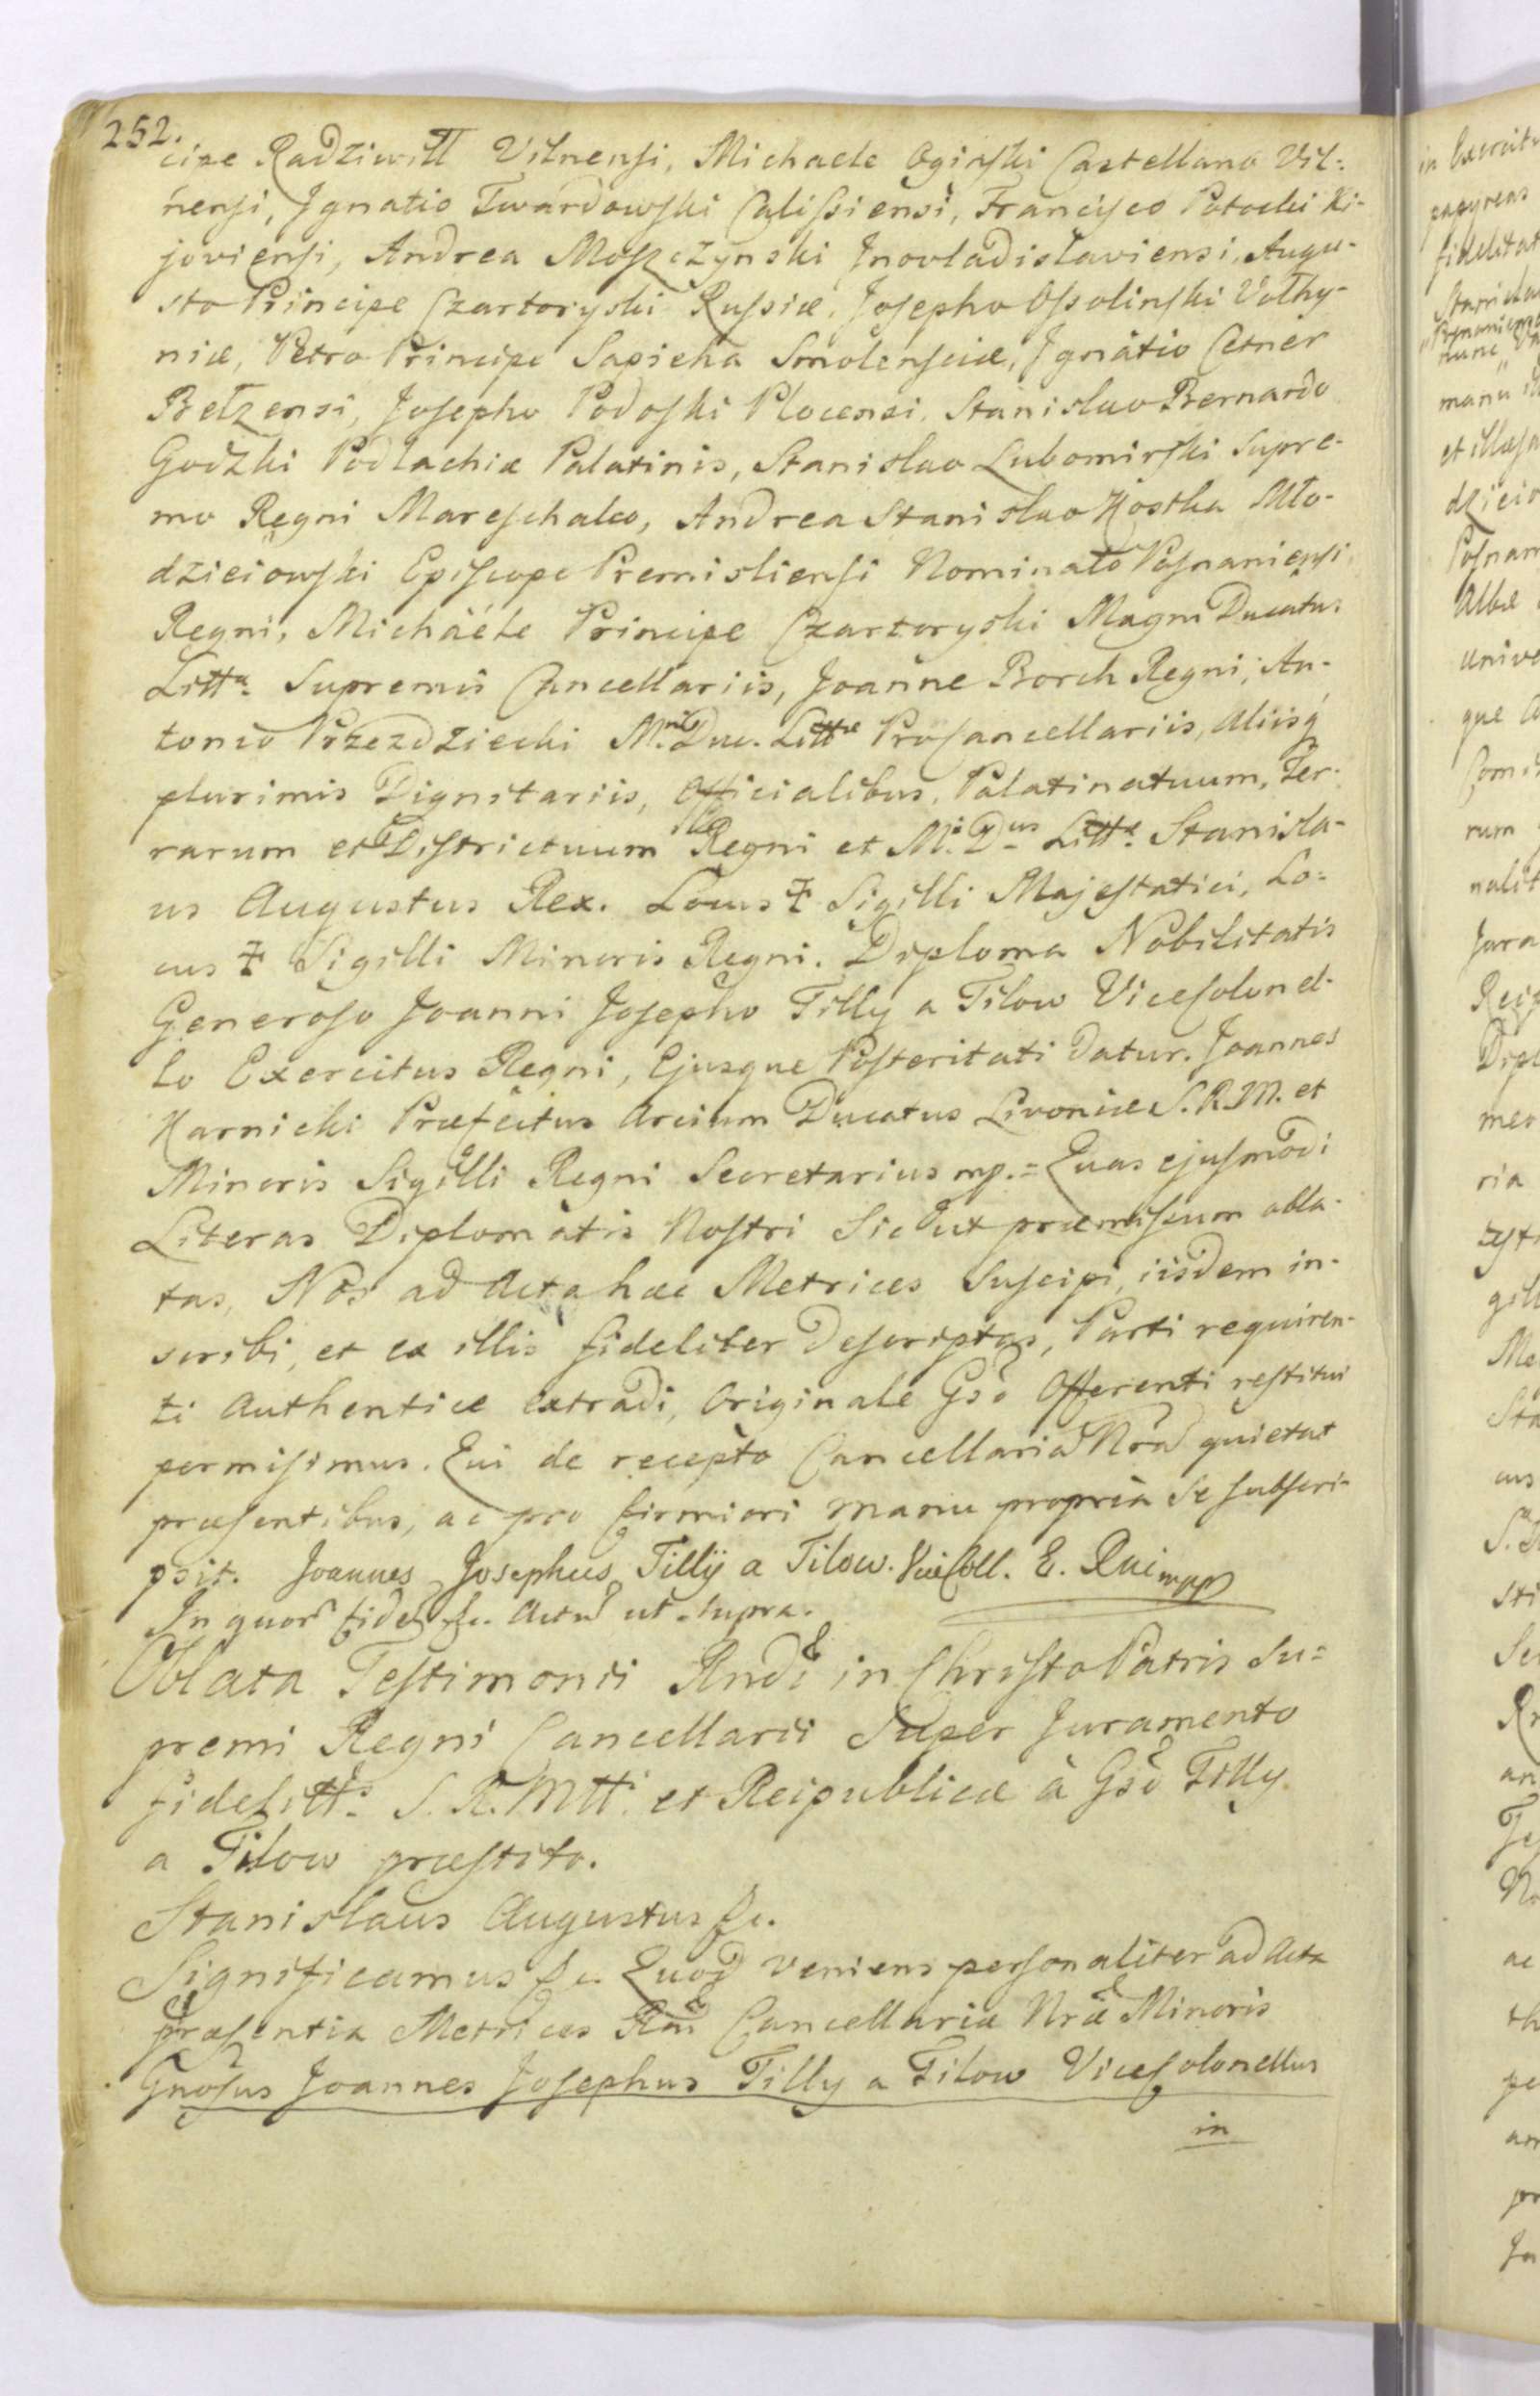 252.
cipe Radziwill Vilnensi, Michaele Oginski Castellano Vil:
nensi, Ignatio Twardowski Calissiensi, Francisco Potocki Ki-
joviensi, Andrea Moszczynski Inovladislaviensi, Augu-
sto Principe Czartoryski Russiæ, Josepho Ossolinski Volhy-
niæ, Petro Principe Sapieha Smolensciæ, Ignatio Cetner
Belzensi, Josepho Podoski Plocensi, Stanislao Bernardo
Godzki Podlachiæ Palatinis, Stanislao Lubomirski Supre-
mo Regni Mareschalco, Andrea Stanislao Kostka Mło-
dzieiowski Episcopo Premisliensi Nominato Posnaniensi
Regni, Michaéle Principe Czartoryski Magni Ducatus
Litt:æ Supremis Cancellariis, Joanne Borch Regni, An-
tonio Przezdziecki M.ni Duc. Littæ ProCancellariis, Aliisq
plurimis Dignitariis, Officialibus, Palatinatuum, Ter-
rarum et Districtuum Regni et M.i D.us Litt:æ Stanisla-
us Augustus Rex. Locus ‡ Sigilli Majestatici, Lo:
cus ‡ Sigilli Minoris Regni. Diploma Nobilitatis
Generoso Joanni Josepho Tilly a Tilow ViceColonel-
lo Exercitus Regni, Ejusque Posteritati datur. Joannes
Karnicki Præfectus Arcium Ducatus Livoniæ S.R.M. et
Minoris Sigilli Regni Secretarius mp. = Quas ejusmodi
Literas Diplomatis Nostri Sicut præmissum obla-
tas, Nos ad Acta hæc Metrices Suscipi, iisdem in-
scribi, et ex illis fideliter descriptas, Parti requiren-
ti Authentice extradi, Originale Gsõ Offerenti restitui
permisimus. Qui de recepto Cancellariã Nrã quietat
præsentibus, ac pro firmiori manu propria Se subscri-
psit. Joannes Josephus Tillÿ a Tilow. ViceColl. E. Rei mpp
In quor fidẽ &c. Actũ ut supra.
Oblata Testimonii Rndi in Christo Patris Su=
premi Regni Cancellarii Super Juramento
fidelitt:s S. R. Mtti et Reipublicæ à Gsõ Tilly
a Tilow præstito.
Stanislaus Augustus &c.
Significamus &c. Quod veniens personaliter ad Acta
præsentia Metrices Rni Cancellariæ Nræ Minoris
Gnosus Joannes Josephus Tilly a Tilow ViceColonellus
in